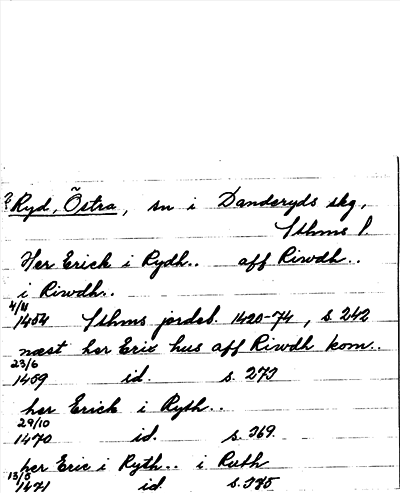 ? Ryd, Östra, sn i Danderyds skg,
Sthms l.
Her Erick i Rydh.. aff Riwdh..
i Riwdh..
4/11
1454 Sthms jordeb. 1420-74, s 242
næst her Eric hus aff Riwdh kom..
23/6
1459 id. s. 273
her Erick i Ryth..
29/10
1470 id. s. 369.
her Eric i Ryth.. i Ruth
1471 id. s. 385